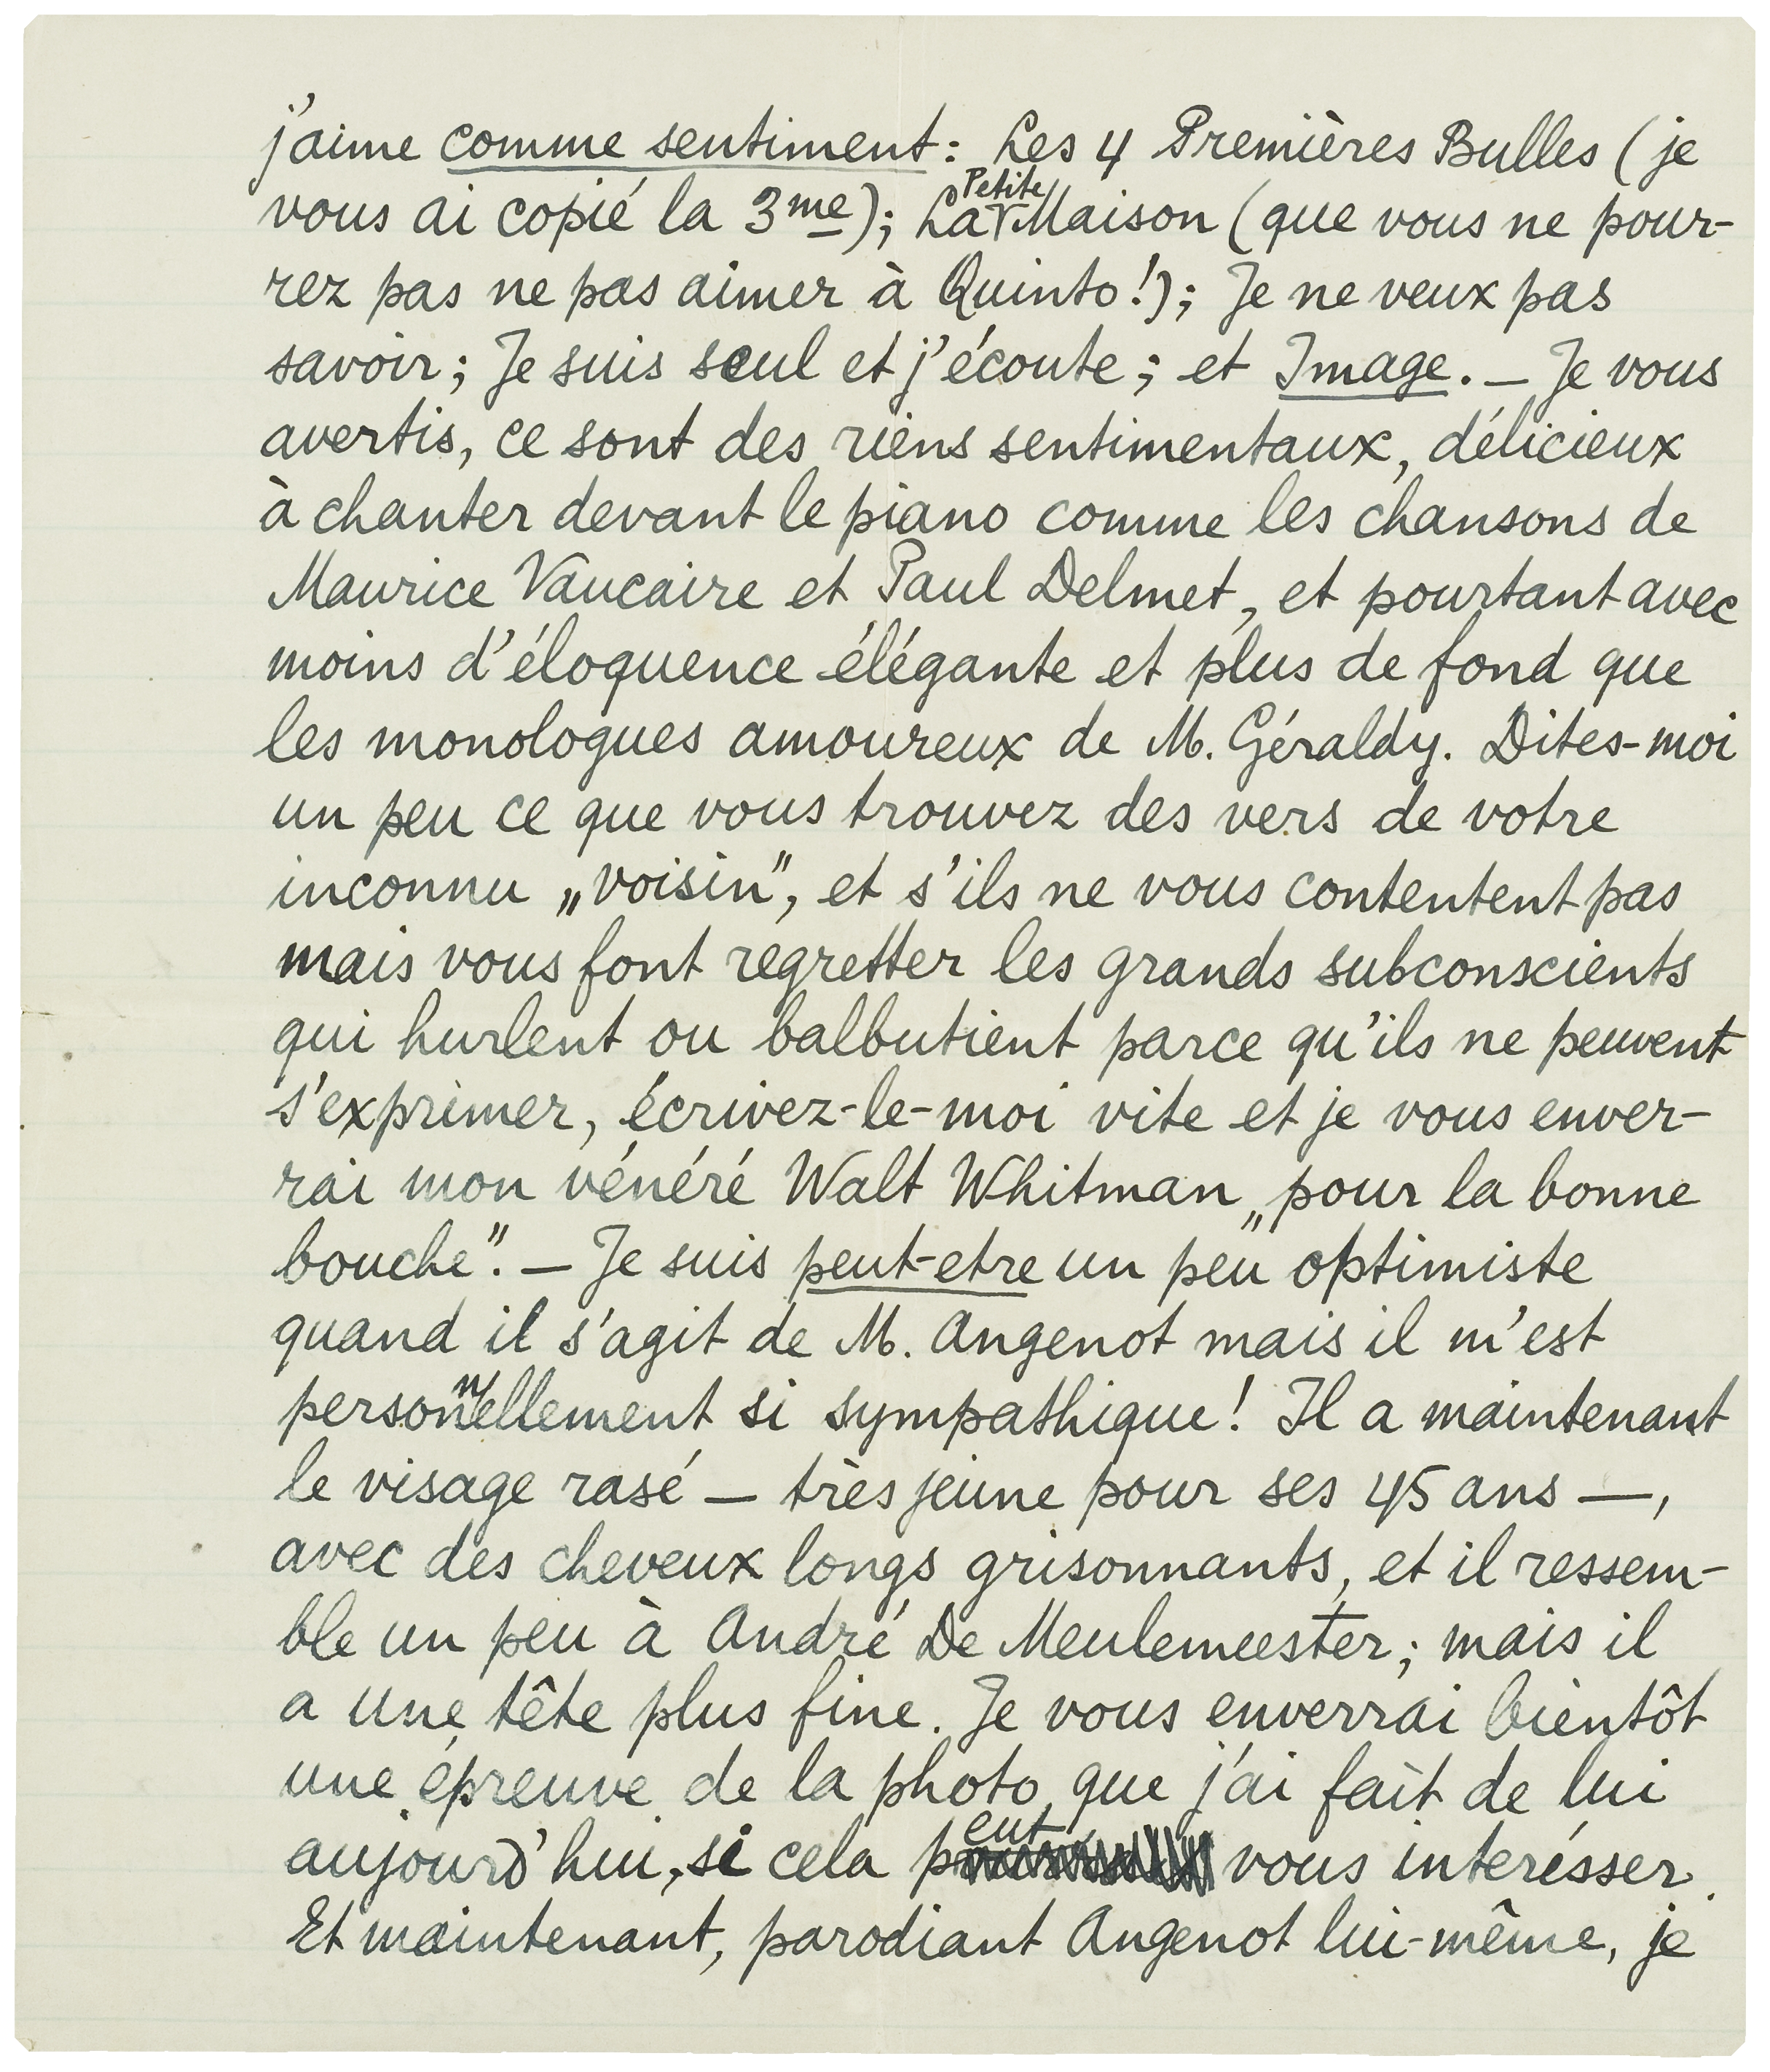 j'aime comme sentiment: Les 4 Premières Bulles (je
vous ai copié la 3me); La Petite Maison (que vous ne pour-
rez pas ne pas aimer à Quinto!); Je ne veux pas
savoir; Je suis seul et j'écoute; et Image. — Je vous
avertis, ce sont des riens sentimentaux, délicieux
à chanter devant le piano comme les chansons de
Maurice Vaucaire et Paul Delmet, et pourtant avec
moins d'éloquence élégante et plus de fond que
les monologues amoureux de M. Géraldy. Dites-moi
un peu ce que vous trouvez des vers de votre
inconnu „voisin", et s'ils ne vous contentent pas
mais vous font regretter les grands subconscients
qui hurlent ou balbutient parce qu'ils ne peuvent
s'exprimer, écrivez-le-moi vite et je vous enver-
rai mon vénéré Walt Whitman „pour la bonne
bouche". — Je suis peut-etre un peu optimiste
quand il s'agit de M. Angenot mais il m'est
personnellement si sympathique! Il a maintenant
le visage rasé — très jeune pour ses 45 ans —,
avec des cheveux longs grisonnants, et il ressem-
ble un peu à André De Meulemeester; mais il
a une tête plus fine. Je vous enverrai bientôt
une épreuve de la photo que j'ai fait de lui
aujourd'hui, si cela peut vous interésser.
Et maintenant, parodiant Angenot lui-même, je